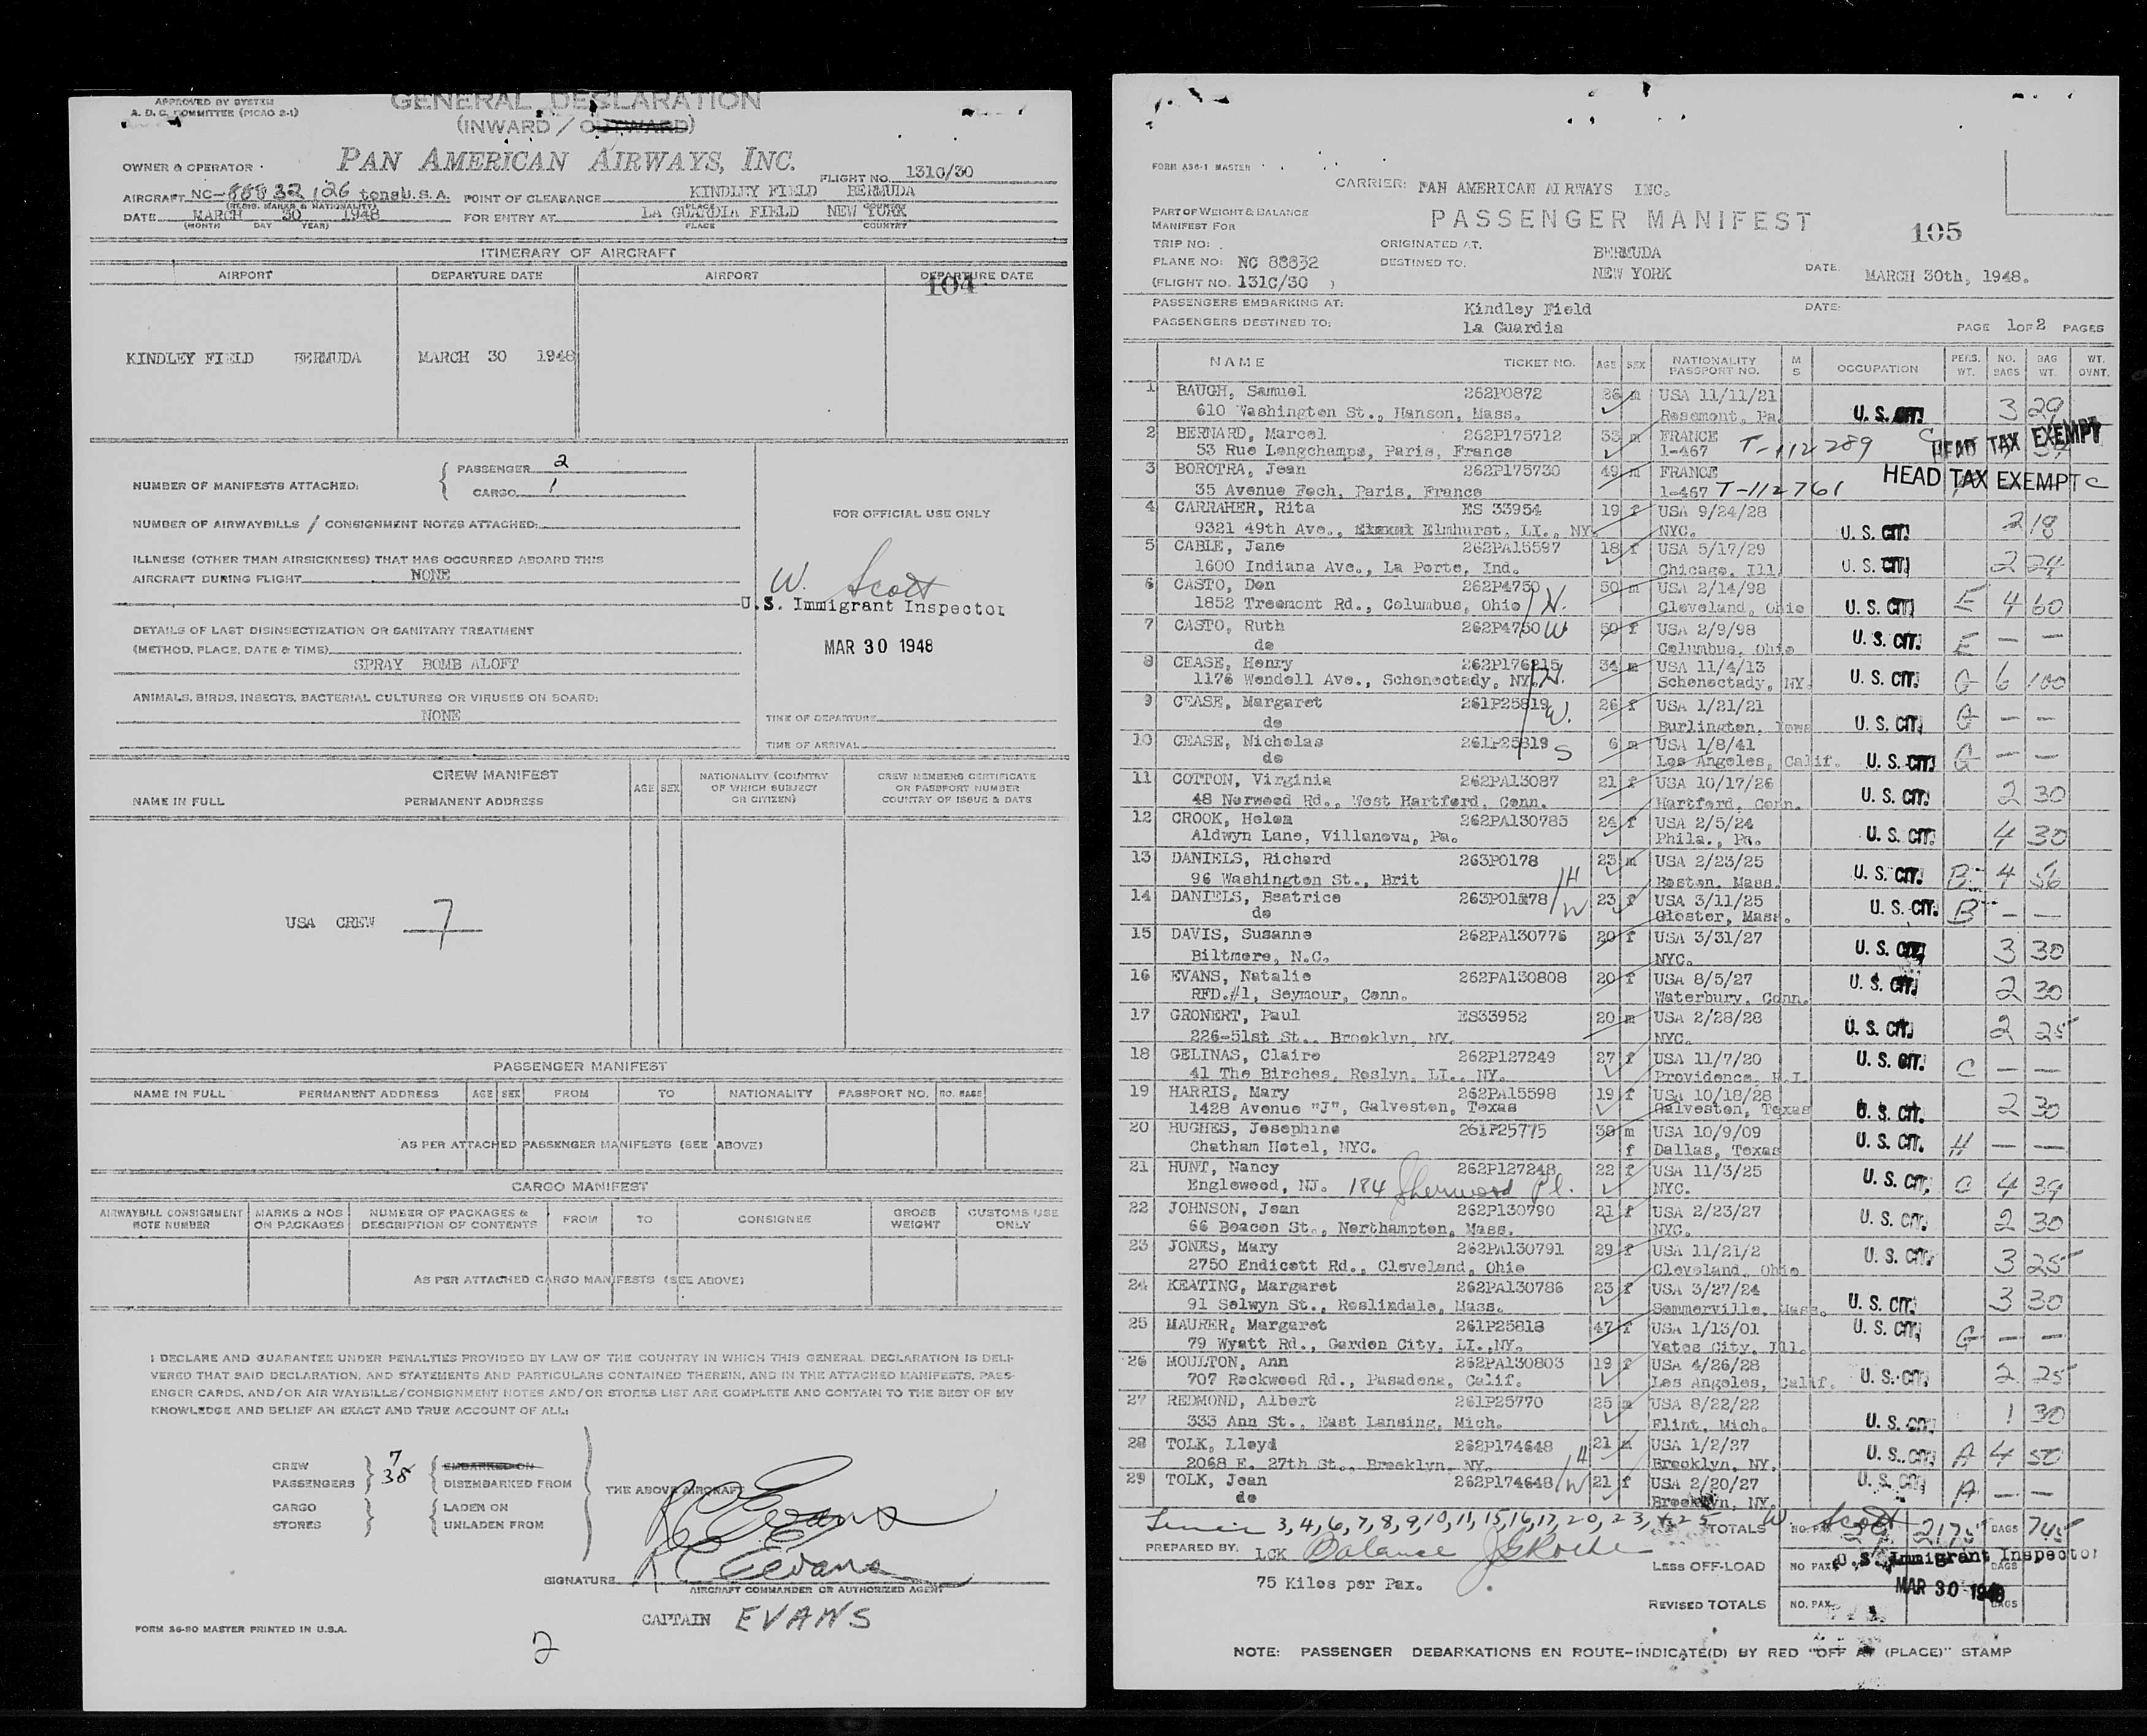 APPROVED BY SYSTEM
A. D. C. COMMITTEE (PICAO 2-1)
GENERAL DECLARATION
(INWARD / OUTWARD)
OWNER & OPERATOR
PAN AMERICAN AIRWAYS, INC.
FLIGHT NO. 131C/30
AIRCRAFT NC-88832 126 tons U.S.A. POINT OF CLEARANCE KINDLEY FIELD BERMUDA
(REGIS. MARKS & NATIONALITY) PLACE COUNTRY
DATE MARCH 30 1948 FOR ENTRY AT LA GUARDIA FIELD NEW YORK
(MONTH DAY YEAR) PLACE COUNTRY
ITINERARY OF AIRCRAFT
AIRPORT DEPARTURE DATE AIRPORT DEPARTURE DATE
104
KINDLEY FIELD BERMUDA MARCH 30 1948
NUMBER OF MANIFESTS ATTACHED: PASSENGER 2
CARGO 1
NUMBER OF AIRWAYBILLS / CONSIGNMENT NOTES ATTACHED:
ILLNESS (OTHER THAN AIRSICKNESS) THAT HAS OCCURRED ABOARD THIS
AIRCRAFT DURING FLIGHT NONE
DETAILS OF LAST DISINSECTIZATION OR SANITARY TREATMENT
(METHOD, PLACE, DATE & TIME)
SPRAY BOMB ALOFT
ANIMALS, BIRDS, INSECTS, BACTERIAL CULTURES OR VIRUSES ON BOARD:
NONE
FOR OFFICIAL USE ONLY
W. Scott
U.S. Immigrant Inspector
MAR 30 1948
TIME OF DEPARTURE
TIME OF ARRIVAL
CREW MANIFEST
NAME IN FULL PERMANENT ADDRESS AGE SEX NATIONALITY (COUNTRY OF WHICH SUBJECT OR CITIZEN) CREW MEMBERS CERTIFICATE OR PASSPORT NUMBER COUNTRY OF ISSUE & DATE
USA CREW 7
PASSENGER MANIFEST
NAME IN FULL PERMANENT ADDRESS AGE SEX FROM TO NATIONALITY PASSPORT NO. NO. BAGS
AS PER ATTACHED PASSENGER MANIFESTS (SEE ABOVE)
CARGO MANIFEST
AIRWAYBILL CONSIGNMENT NOTE NUMBER MARKS & NOS ON PACKAGES NUMBER OF PACKAGES & DESCRIPTION OF CONTENTS FROM TO CONSIGNEE GROSS WEIGHT CUSTOMS USE ONLY
AS PER ATTACHED CARGO MANIFESTS (SEE ABOVE)
I DECLARE AND GUARANTEE UNDER PENALTIES PROVIDED BY LAW OF THE COUNTRY IN WHICH THIS GENERAL DECLARATION IS DELI-
VERED THAT SAID DECLARATION, AND STATEMENTS AND PARTICULARS CONTAINED THEREIN, AND IN THE ATTACHED MANIFESTS, PASS-
ENGER CARDS, AND/OR AIR WAYBILLS/CONSIGNMENT NOTES AND/OR STORES LIST ARE COMPLETE AND CONTAIN TO THE BEST OF MY
KNOWLEDGE AND BELIEF AN EXACT AND TRUE ACCOUNT OF ALL:
CREW 7 EMBARKED ON
PASSENGERS 38 DISEMBARKED FROM THE ABOVE AIRCRAFT
CARGO LADEN ON
STORES UNLADEN FROM
R C Evans
R C Evans
SIGNATURE
AIRCRAFT COMMANDER OR AUTHORIZED AGENT
CAPTAIN EVANS
FORM 36-80 MASTER PRINTED IN U.S.A.
2
FORM A36-1 MASTER
CARRIER: PAN AMERICAN AIRWAYS INC.
PART OF WEIGHT & BALANCE
MANIFEST FOR
PASSENGER MANIFEST
105
TRIP NO: ORIGINATED AT. BERMUDA
PLANE NO: NC 88832 DESTINED TO. NEW YORK DATE. MARCH 30th, 1948.
(FLIGHT NO. 131C/30 )
PASSENGERS EMBARKING AT: Kindley Field DATE:
PASSENGERS DESTINED TO: La Guardia
PAGE 1 OF 2 PAGES
NAME TICKET NO. AGE SEX NATIONALITY PASSPORT NO. M S OCCUPATION PERS. WT. NO. BAGS BAG WT. WT. OVNT.
1 BAUGH, Samuel 262P0872 26 m USA 11/11/21
610 Washington St., Hanson, Mass. Rosemont, Pa. U. S. CIT. 3 29
2 BERNARD, Marcel 262P175712 33 m FRANCE
53 Rue Longchamps, Paris, France 1-467 T-112289 HEAD TAX EXEMPT
3 BOROTRA, Jean 262P175730 49 m FRANCE
35 Avenue Foch, Paris, France 1-467 T-112761 HEAD TAX EXEMPT C
4 CARRAHER, Rita ES 33954 19 f USA 9/24/28
9321 49th Ave., Elmhurst, LI., NY. NYC. U. S. CIT. 2 18
5 CABLE, Jane 262PA15597 18 f USA 5/17/29
1600 Indiana Ave., La Porte, Ind. Chicago, Ill. U. S. CIT. 2 24
6 CASTO, Don 262P4750 50 m USA 2/14/98
1852 Treemont Rd., Columbus, Ohio H. Cleveland, Ohio U. S. CIT. E 4 60
7 CASTO, Ruth 262P4750 W. 50 f USA 2/9/98
do Columbus, Ohio U. S. CIT. E — —
8 CEASE, Henry 262P176215 34 m USA 11/4/13
1176 Wendell Ave., Schenectady, NY. H. Schenectady, NY. U. S. CIT. G 6 100
9 CEASE, Margaret 261P25819 W. 26 f USA 1/21/21
do Burlington, Iowa U. S. CIT. G — —
10 CEASE, Nicholas 261P25819 S 6 m USA 1/8/41
do Los Angeles, Calif. U. S. CIT. G — —
11 COTTON, Virginia 262PA13087 21 f USA 10/17/26
48 Norwood Rd., West Hartford, Conn. Hartford, Conn. U. S. CIT. 2 30
12 CROOK, Helen 262PA130785 24 f USA 2/5/24
Aldwyn Lane, Villanova, Pa. Phila., Pa. U. S. CIT. 4 30
13 DANIELS, Richard 263P0178 23 m USA 2/23/25
96 Washington St., Brit H Boston, Mass. U. S. CIT. B 4 56
14 DANIELS, Beatrice 263P0178 W 23 f USA 3/11/25
do Gloster, Mass. U. S. CIT. B — —
15 DAVIS, Susanne 262PA130776 20 f USA 3/31/27
Biltmore, N.C. NYC. U. S. CIT. 3 30
16 EVANS, Natalie 262PA130808 20 f USA 8/5/27
RFD.#1, Seymour, Conn. Waterbury, Conn. U. S. CIT. 2 30
17 GRONERT, Paul ES33952 20 m USA 2/28/28
226-51st St., Brooklyn, NY. NYC. U. S. CIT. 2 25
18 GELINAS, Claire 262P127249 27 f USA 11/7/20
41 The Birches, Roslyn, LI., NY. Providence, R.I. U. S. CIT. C — —
19 HARRIS, Mary 262PA15598 19 f USA 10/18/28
1428 Avenue "J", Galveston, Texas Galveston, Texas U. S. CIT. 2 30
20 HUGHES, Josephine 261P25775 38 m USA 10/9/09
Chatham Hotel, NYC. f Dallas, Texas U. S. CIT. H — —
21 HUNT, Nancy 262P127248 22 f USA 11/3/25
Englewood, NJ. 184 Sherwood Pl. NYC. U. S. CIT. C 4 39
22 JOHNSON, Jean 262P130790 21 f USA 2/23/27
66 Beacon St., Northampton, Mass. NYC. U. S. CIT. 2 30
23 JONES, Mary 262PA130791 29 f USA 11/21/2
2750 Endicott Rd., Cleveland, Ohio Cleveland, Ohio U. S. CIT. 3 25
24 KEATING, Margaret 262PA130786 23 f USA 3/27/24
91 Selwyn St., Roslindale, Mass. Sommerville, Mass. U. S. CIT. 3 30
25 MAURER, Margaret 261P25818 47 f USA 1/13/01
79 Wyatt Rd., Garden City, LI.,NY. Yates City, Ill. U. S. CIT. G — —
26 MOULTON, Ann 262PA130803 19 f USA 4/26/28
707 Rockwood Rd., Pasadena, Calif. Los Angeles, Calif. U. S. CIT. 2 25
27 REDMOND, Albert 261P25770 25 m USA 8/22/22
333 Ann St., East Lansing, Mich. Flint, Mich. U. S. CIT. 1 30
28 TOLK, Lloyd 262P174648 21 m USA 1/2/27
2068 E. 27th St., Brooklyn, NY. H Brooklyn, NY. U. S. CIT. A 4 50
29 TOLK, Jean 262P174648 W 21 f USA 2/20/27
do Brooklyn, NY. U. S. CIT. A — —
3, 4, 6, 7, 8, 9, 10, 11, 15, 16, 17, 20, 23, + 25 TOTALS W. Scott NO. PAX 29 2175 BAGS 745
PREPARED BY: LCK Balance
LESS OFF-LOAD NO. PAX U. S. Immigrant Inspector BAGS
75 Kilos per Pax. MAR 30 1948
REVISED TOTALS NO. PAX BAGS
NOTE: PASSENGER DEBARKATIONS EN ROUTE-INDICATE(D) BY RED "OFF AT (PLACE)" STAMP